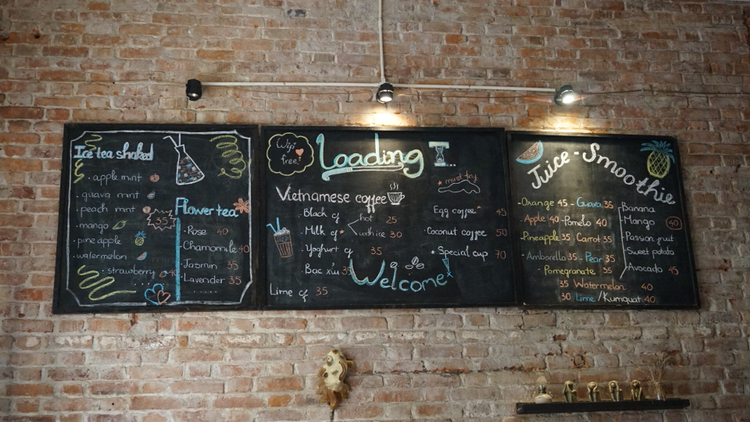 Ice tea shaked
apple mint
guava mint
peach mint
mango
pineapple
watermelon
strawberry
35
40
Flower tea
Rose 40
Chamomile 40
Jasmin 35
Lavender 35
Wifi free!
Loading
Vietnamese coffee
must try
Black cf
Milk cf
hot 25
with ice 30
Yoghurt cf 35
Bạc xỉu 35
Lime cf 35
Egg coffee 45
Coconut coffee 50
Special cup 70
Welcome!
Juice - Smoothie
Orange 45 - Guava 35
Apple 40 - Pomelo 40
Pineapple 35 Carrot 35
Ambarella 35 Pear 35
Pomegranate 35
35 Watermelon
30 Lime/Kumquat 40
Banana
Mango 40
Passion fruit
Sweet potato
Avocado 45